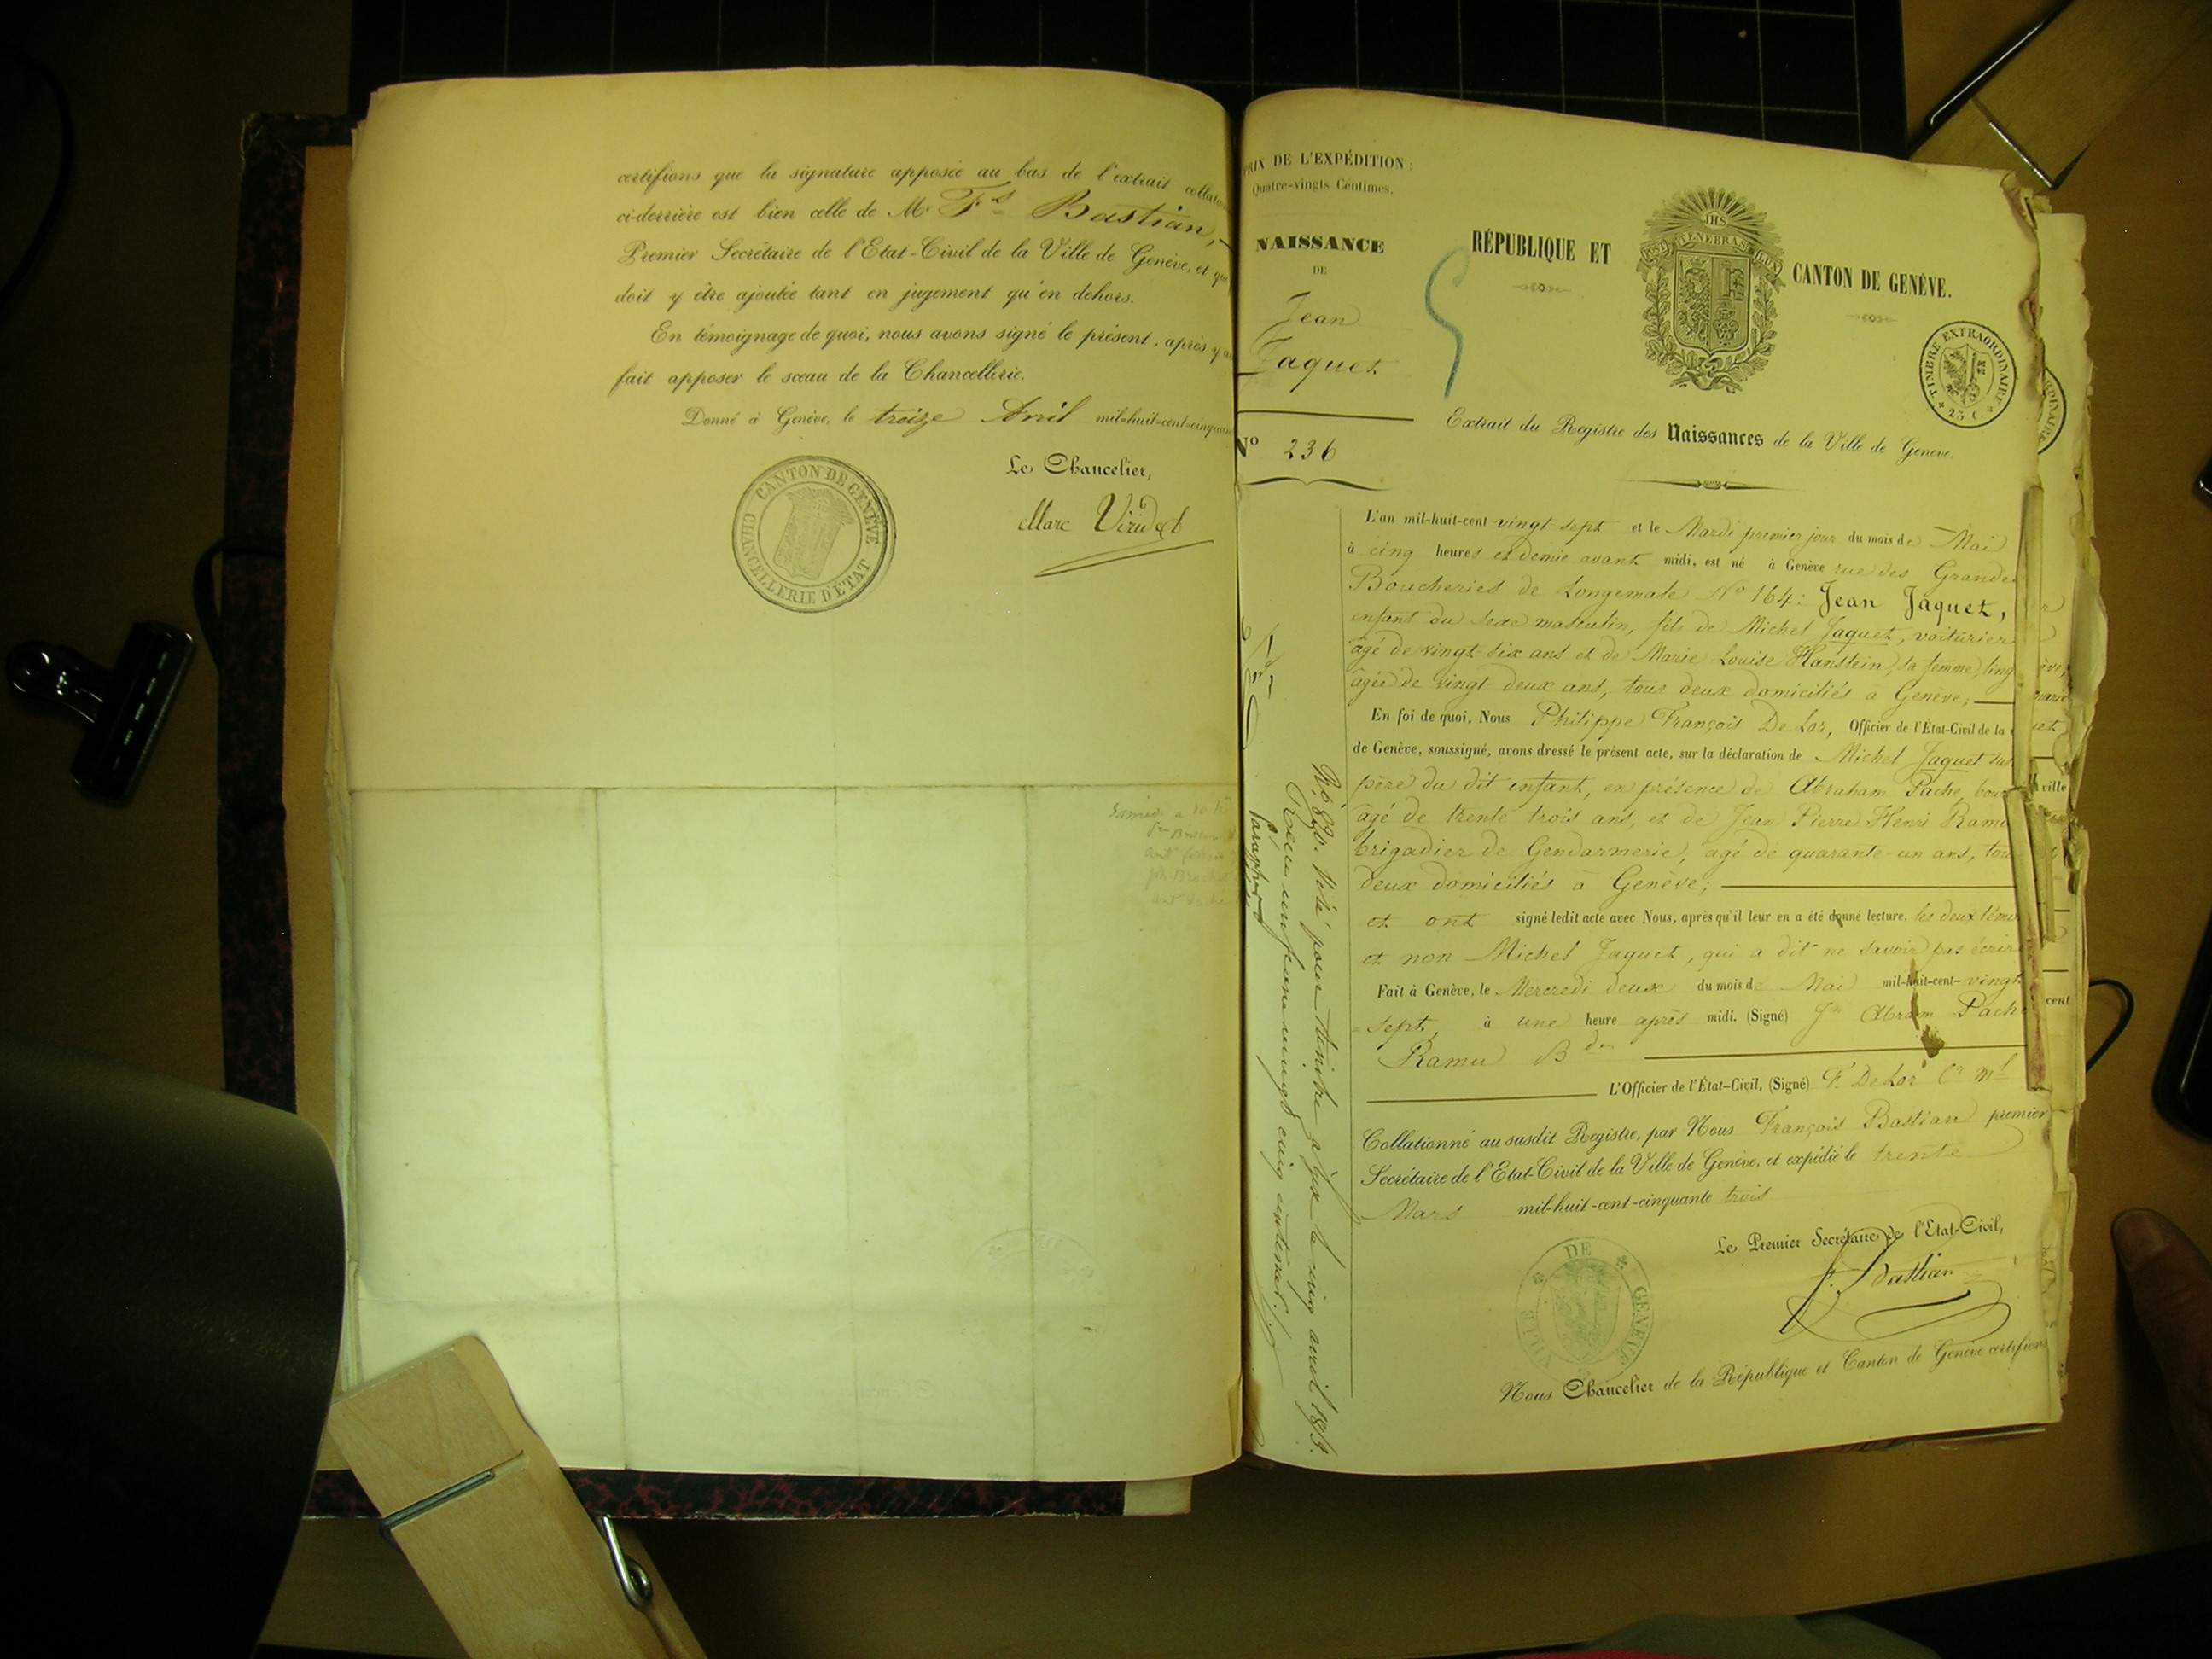 certifions que la signature apposée au bas de l'extrait
ci-derrière est bien celle de Mr Fs Bastian,
Premier Secrétaire de l'Etat-Civil de la Ville de Genève, et
doit y être ajoutée tant en jugement qu'en dehors.
En témoignage de quoi, nous avons signé le présent, après y
fait apposer le sceau de la Chancellerie.
Donné à Genève, le treize Avril mil-huit-cent-cinquan
Le Chancelier,
Marc Viridet
CANTON DE GENÈVE
CHANCELLERIE D'ETAT
PRIX DE L'EXPÉDITION:
Quatre-vingts Centimes.
NAISSANCE
DE
Jean
Jaquet
No 236
5
RÉPUBLIQUE ET CANTON DE GENÈVE.
JHS
POST TENEBRAS LUX
TIMBRE EXTRAORDINAIRE
25 C
Extrait du Registre des Naissances de la Ville de Genève.
L'an mil-huit-cent vingt sept et le Mardi premier jour du mois de Mai
à cinq heures et demie avant midi, est né à Genève rue des Grandes
Boucheries de Longemale No 164: Jean Jaquet,
enfant du sexe masculin, fils de Michel Jaquet, voiturier
âgé de vingt-six ans et de Marie Louise Hanstein, sa femme, ling
âgée de vingt deux ans, tous deux domiciliés à Genève;
En foi de quoi, Nous Philippe François De Lor, Officier de l'État-Civil de la
de Genève, soussigné, avons dressé le présent acte, sur la déclaration de Michel Jaquet
père du dit enfant, en présence de Abraham Pache,
âgé de trente trois ans, et de Jean Pierre Henri Ramu
brigadier de Gendarmerie, âgé de quarante-un ans, tous
deux domiciliés à Genève;
et ont signé ledit acte avec Nous, après qu'il leur en a été donné lecture. les deux témo
et non Michel Jaquet, qui a dit ne savoir pas écrire
Fait à Genève, le Mercredi deux du mois de Mai mil-huit-cent-vingt
=sept, à une heure après midi. (Signé) Jn Abram Pache
Ramu Bdier
L'Officier de l'État-Civil, (Signé) F. De Lor
Collationné au susdit Registre, par Nous François Bastian premier
Secrétaire de l'Etat-Civil de la Ville de Genève, et expédié le trente
Mars mil-huit-cent-cinquante trois
Le Premier Secrétaire de l'Etat-Civil,
F. Bastian
VILLE DE GENÈVE
Nous Chancelier de la République et Canton de Genève certifions
Visé pour timbre à Gex le cinq avril
Reçu un franc vingt cinq centimes.